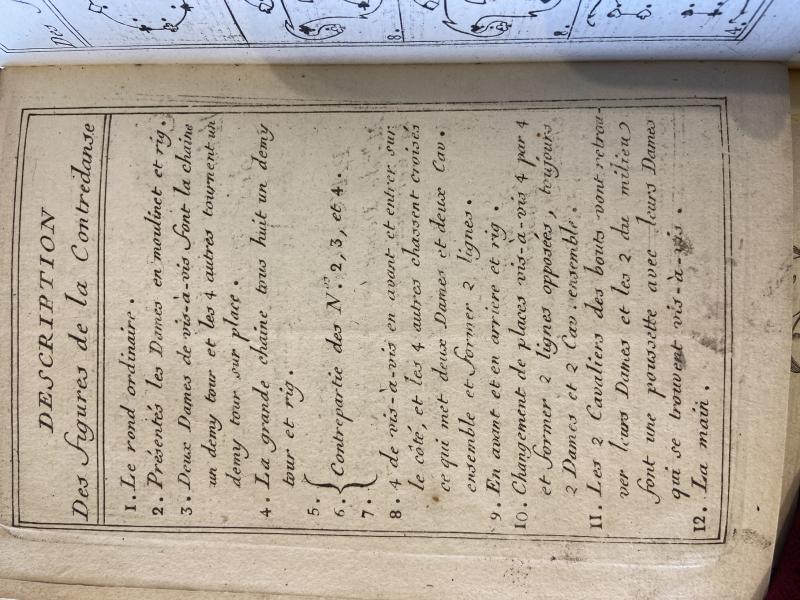 DESCRIPTION
Des figures de la Contredanse
1. Le rond ordinaire.
2. Présentés les Dames en moulinet et rig.
3. Deux Dames de vis-à-vis font la chaine
un demy tour et les 4 autres tournent un
demy tour sur place.
4. La grande chaine tous huit un demy
tour et rig.
5.
6. Contrepartie des Nos. 2, 3, et 4.
7.
8. 4 de vis-à-vis en avant et entrer sur
le côté, et les 4 autres chassent croisés
ce qui met deux Dames et deux Cav.
ensemble et former 2 lignes.
9. En avant et en arriere et rig.
10. Changement de places vis-à-vis 4 par 4
et former 2 lignes opposées, toujours
2 Dames et 2 Cav. ensemble.
11. Les 2 Cavaliers des bouts vont retrou-
ver leurs Dames et les 2 du milieu
font une poussette avec leurs Dames
qui se trouvent vis-à-vis.
12. La main.